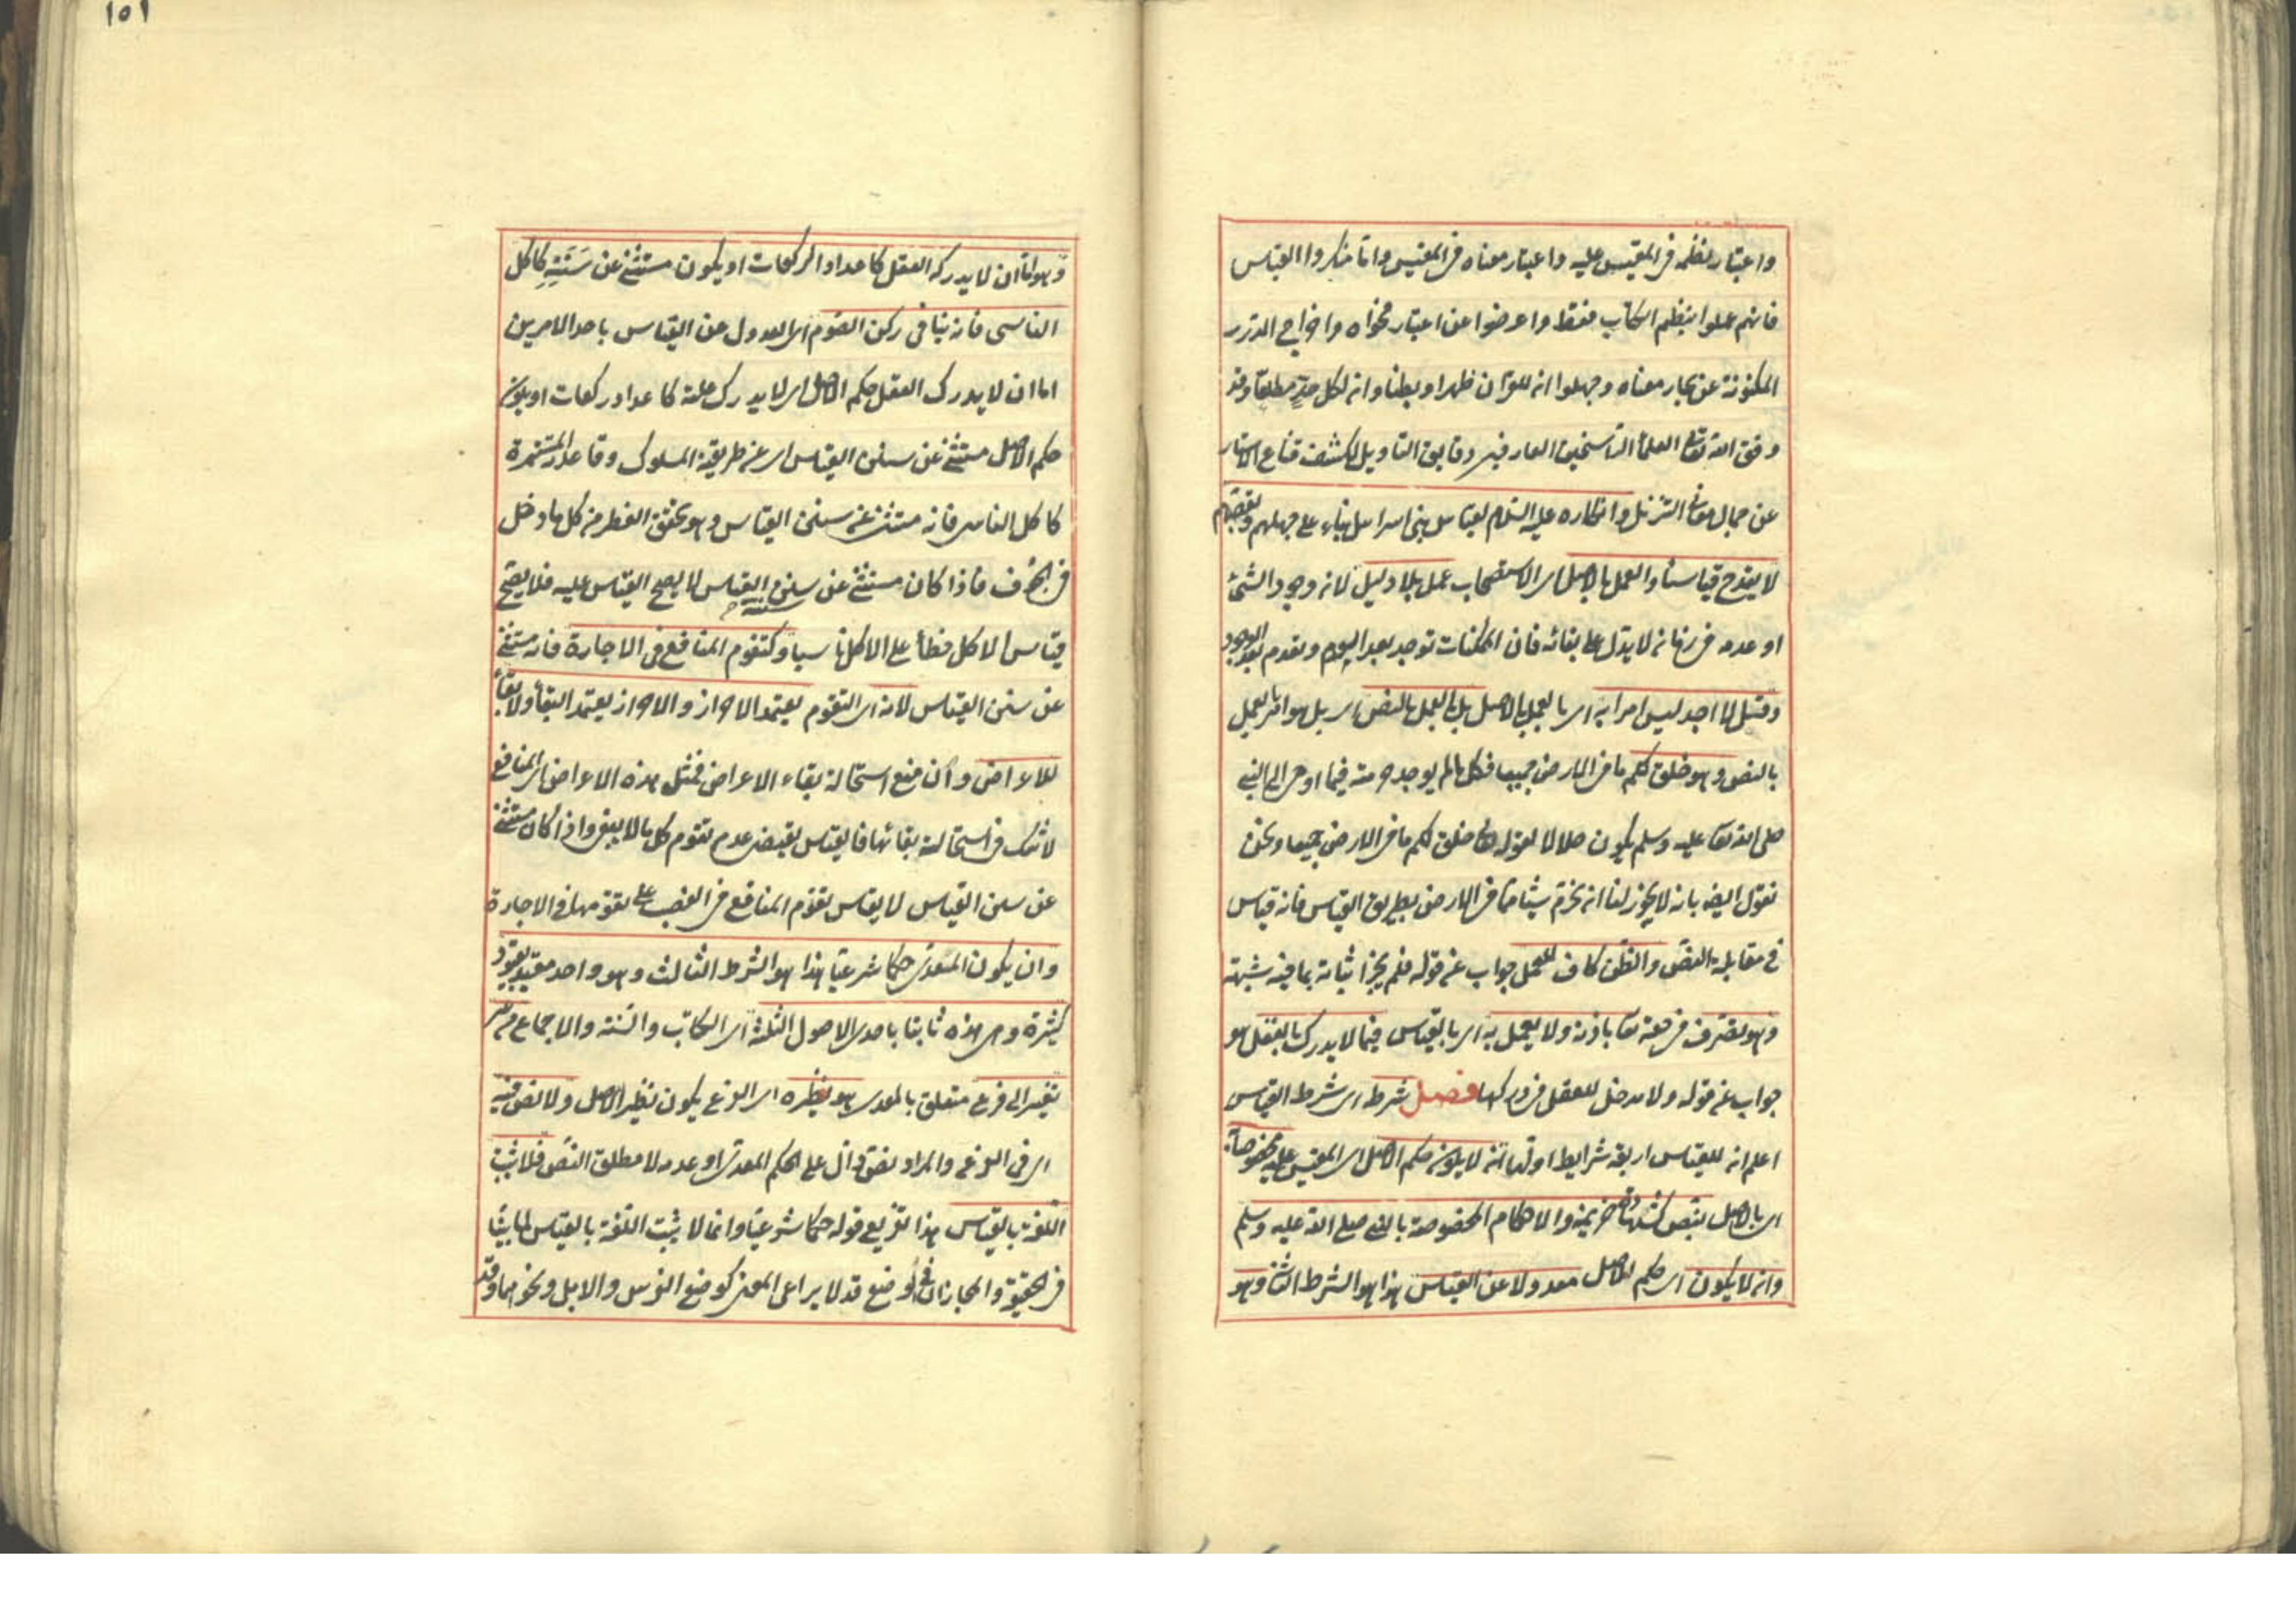 واعتبار نظمه في المقيس عليه واعتبار معناه في المقيس واما منكروا القياس
فانهم عملوا بنظم الكتاب فقط واعرضوا عن اعتبار فحواه واخراج الدرر
المكنونة عن بحار معناه وجهلوا ان للقرآن ظهرا وبطنا وان لكل حد مطلعا وقد
وفق الله تعالى العلماء الراسخين العارفين دقايق التاويل لكشف قناع الاستار
عن جمال معاني التنزيل وانكاره عليه السلام لقياس بني اسرائيل بناء على جهلهم وتعصبهم
لا يقدح قياسنا والعمل بالاصل اى الاستصحاب عمل بلا دليل لان وجود الشئ
او عدمه في زمان لا يدل على بقائه فان الممكنات توجد بعد العدم وتعدم بعد الوجود
وقل لا اجد ليس امرا به اى بالعمل بالاصل بل بالعمل بالنص اى بل هو امر بالعمل
بالنص وهو خلق لكم ما في الارض جميعا فكل ما لم يوجد حرمته فيما اوحى الى النبي
صلى الله تعالى عليه وسلم يكون حلالا لقوله تعالى خلق لكم ما في الارض جميعا ونحن
نقول ايضا بانه لا يجوز لنا ان نحرم شيئا مما في الارض بطريق القياس فانه قياس
في مقابلة النص والظن كاف للعمل جواب عن قوله فلم يجز اثباته بما فيه شبهة
وهو تصرف في حقه تعالى باذنه ولا يعمل به اى بالقياس فيما لا يدرك بالعقل هو
جواب عن قوله ولا مدخل للعقل في دركها فصل شرطه اى شرط القياس
اعلم ان للقياس اربعة شرايط اولها انه لا يكون حكم الاصل اى المقيس عليه مخصوصا به
اى بالاصل بنص كشهادة خزيمة والاحكام المخصوصة بالنبي صلى الله عليه وسلم
وان لا يكون اى حكم الاصل معدولا عن القياس هذا هو الشرط الثاني وهو
١٥١
وهو اما ان لا يدركه العقل كاعداد الركعات او يكون مستثنى عن سننه كاكل
الناسى فانه ينافى ركن الصوم اى العدول عن القياس باحد الامرين
اما ان لا يدرك العقل حكم الاصل اى لا يدرك علته كاعداد ركعات او يكون
حكم الاصل مستثنى عن سنن القياس اى عن طريقته المسلوك وقاعدته المستمرة
كاكل الناسى فانه مستثنى عن سنن القياس وهو تحقق الفطر من كل ما دخل
في الجوف فاذا كان مستثنى عن سنن القياس لا يصح القياس عليه فلا يصح
قياس الاكل خطأ على الاكل ناسيا وكتقوم المنافع في الاجارة فانه مستثنى
عن سنن القياس لانه اى التقوم يعتمد الاحراز والاحراز يعتمد البقاء ولا بقاء
للاعراض وان منع استحالة بقاء الاعراض فمثل هذه الاعراض اى المنافع
لا شك في استحالة بقائها فالقياس يقتضى عدم تقوم كل ما لا يبقى واذا كان مستثنى
عن سنن القياس لا يقاس تقوم المنافع في الغصب على تقومها في الاجارة
وان يكون المعدى حكما شرعيا هذا هو الشرط الثالث وهو واحد مقيد بقيود
كثيرة وهى هذه ثابتا باحدى الاصول الثلثة اى الكتاب والسنة والاجماع من غير
تغيير الى فرع متعلق بالمعدى هو نظيره اى الفرع يكون نظير الاصل ولا نص فيه
اى في الفرع والمراد نص دال على الحكم المعدى او عدمه لا مطلق النص فلا يثبت
اللغة بالقياس هذا تفريع قوله حكما شرعيا وانما لا يثبت اللغة بالقياس لما بينا
في الحقيقة والمجاز ان في الوضع قد لا يراعى المعنى كوضع الفرس والابل ونحوهما وقد